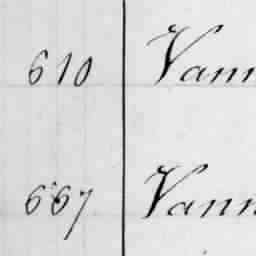 610 Vann
667 Vann